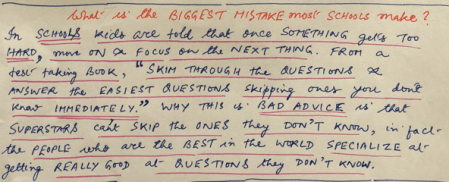 What is the BIGGEST MISTAKE most SCHOOLS make?
In SCHOOLS kids are told that once SOMETHING gets TOO
HARD, move ON & FOCUS on the NEXT THING. FROM a
test taking BOOK, "SKIM THROUGH the QUESTIONS &
ANSWER the EASIEST QUESTIONS skipping ones you don't
know IMMEDIATELY." WHY THIS is BAD ADVICE is that
SUPERSTARS can't SKIP the ONES they DON'T KNOW, in fact
the PEOPLE who are the BEST in the WORLD SPECIALIZE at
getting REALLY GOOD at QUESTIONS they DON'T KNOW.